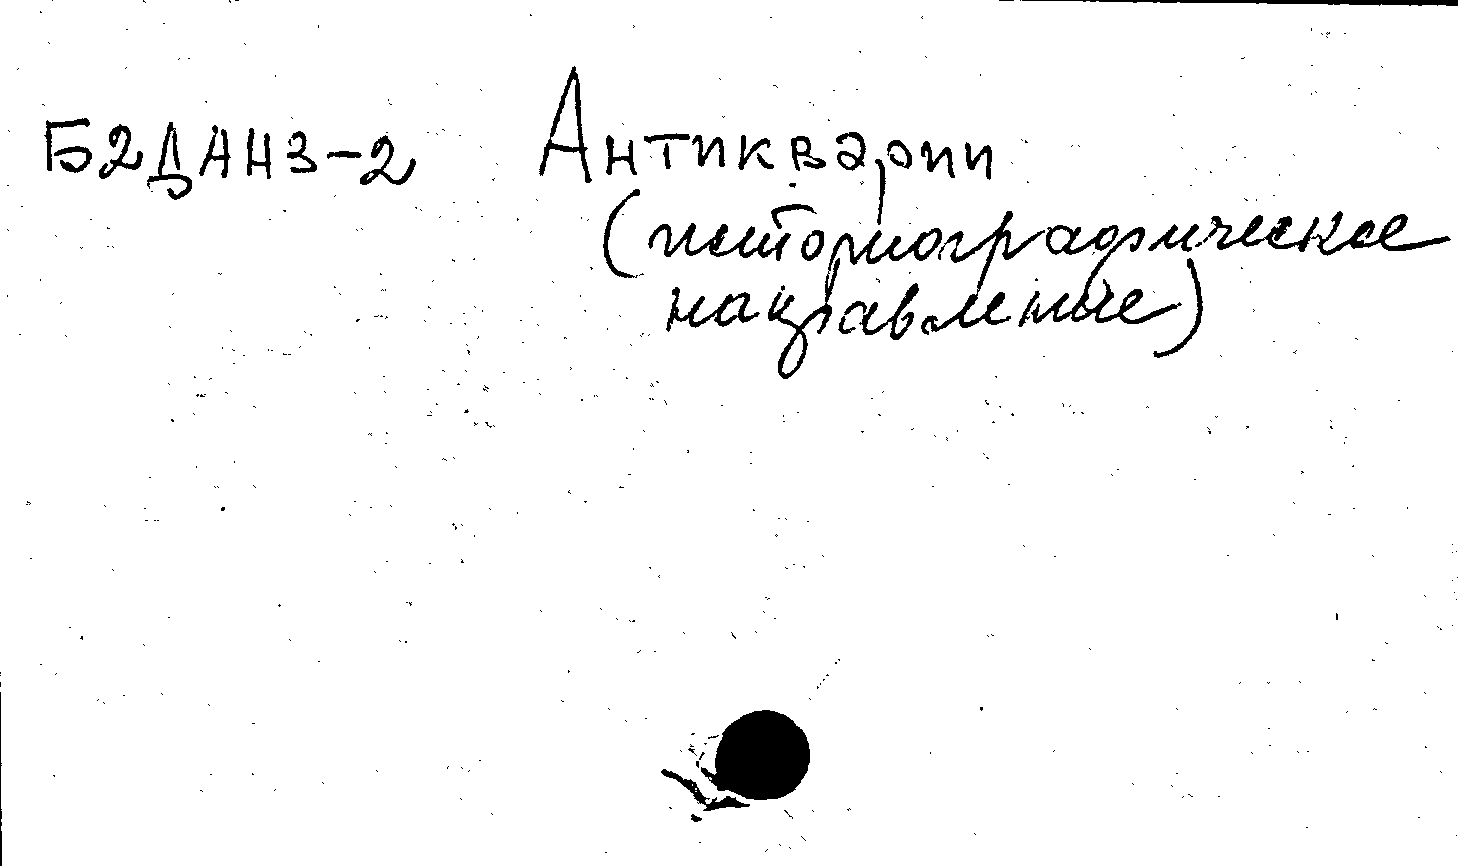 Б2ДАНЗ-2 Антикварии
(историографическое
направление)